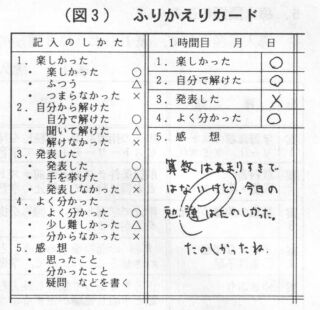 （図３） ふりかえりカード
記入のしかた
１．楽しかった
・ 楽しかった ○
・ ふつう △
・ つまらなかった ×
２．自分から解けた
・ 自分で解けた ○
・ 聞いて解けた △
・ 解けなかった ×
３．発表した
・ 発表した ○
・ 手を挙げた △
・ 発表しなかった ×
４．よく分かった
・ よく分かった ○
・ 少し難しかった △
・ 分からなかった ×
５．感 想
・ 思ったこと
・ 分かったこと
・ 疑問 などを書く
１時間目 月 日
１．楽しかった ○
２．自分で解けた ○
３．発表した ×
４．よく分かった ○
５．感 想
算数はあまりすきで
はないけど、今日の
勉強はたのしかった。
たのしかったね